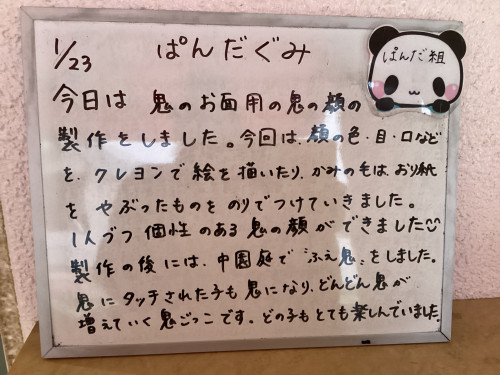 1/23 ぱんだぐみ
ぱんだ組
今日は 鬼のお面用の鬼の顔の
製作をしました。今回は、顔の色・目・口など
を、クレヨンで絵を描いたり、かみの毛は、おり紙
を やぶったものを のりでつけていきました。
1人づつ 個性のある鬼の顔ができました
製作の後には、中園庭で "ふえ鬼"をしました。
鬼にタッチされた子も鬼になり、どんどん鬼が
増えていく鬼ごっこです。どの子もとても楽しんでいました。